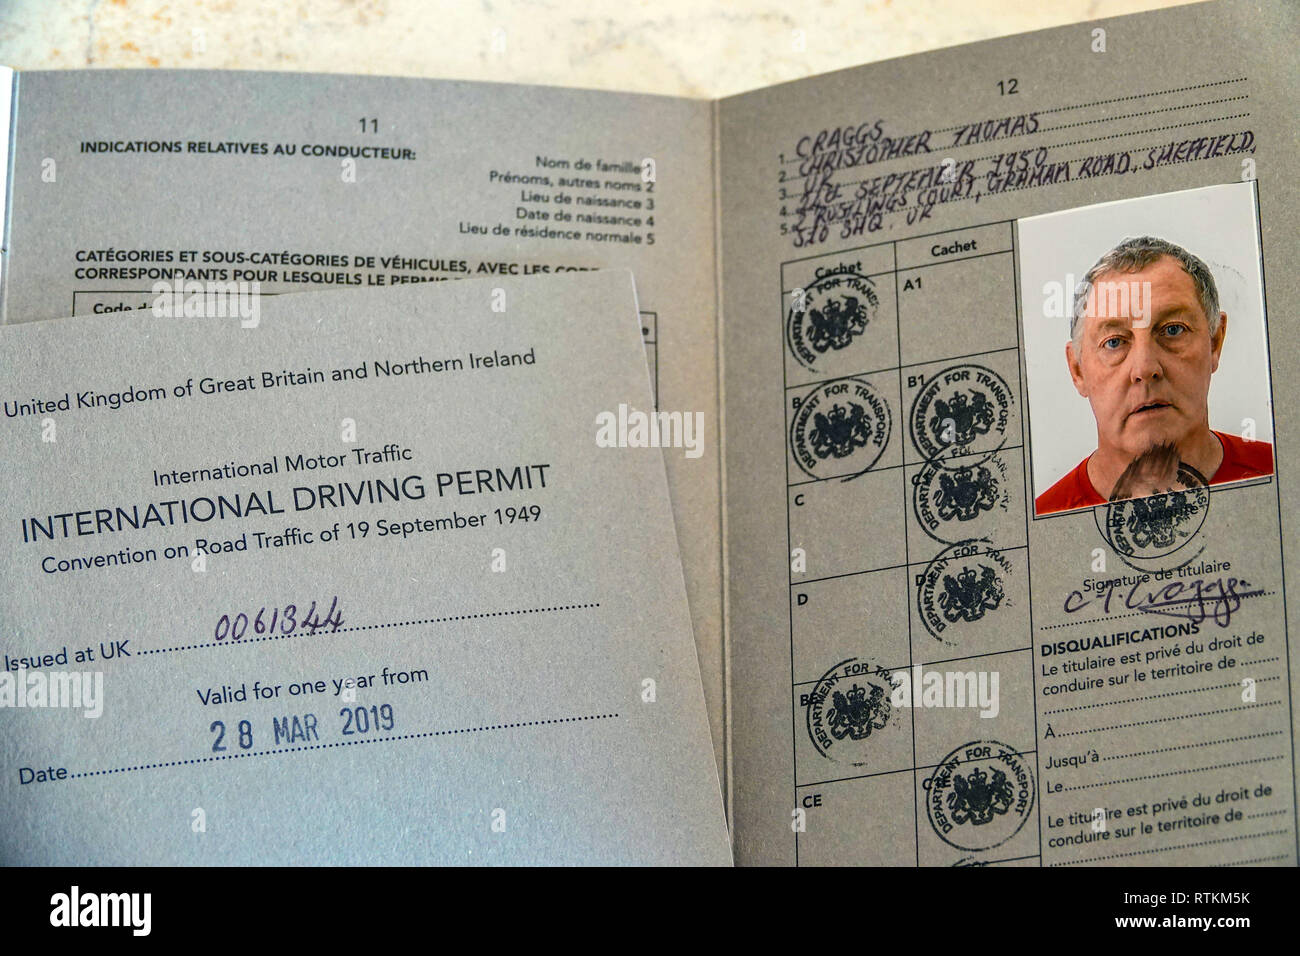 11
INDICATIONS RELATIVES AU CONDUCTEUR:
Nom de famille 1
Prénoms, autres noms 2
Lieu de naissance 3
Date de naissance 4
Lieu de résidence normale 5
CATÉGORIES ET SOUS-CATÉGORIES DE VÉHICULES, AVEC LES
CORRESPONDANTS POUR LESQUELS LE
Code
United Kingdom of Great Britain and Northern Ireland
International Motor Traffic
INTERNATIONAL DRIVING PERMIT
Convention on Road Traffic of 19 September 1949
Issued at UK 0061344
Valid for one year from
28 MAR 2019
Date
12
1. CRAGGS
2. CHRISTOPHER THOMAS
3. UK
4. SEPTEMBER 1950
5. RUSTLINGS COURT, GRAHAM ROAD, SHEFFIELD,
UK
Cachet
Cachet
DEPARTMENT FOR TRANSPORT
A1
B
DEPARTMENT FOR TRANSPORT
B1
DEPARTMENT FOR TRANSPORT
C
DEPARTMENT FOR
D
DEPARTMENT FOR
DEPARTMENT FOR
CE
DEPARTMENT FOR TRANSPORT
Signature de titulaire
C T. Craggs.
DISQUALIFICATIONS
Le titulaire est privé du droit de
conduire sur le territoire de
À
Jusqu'à
Le
Le titulaire est privé du droit de
conduire sur le territoire de
alamy
alamy
Image ID: RTKM5K
www.alamy.com